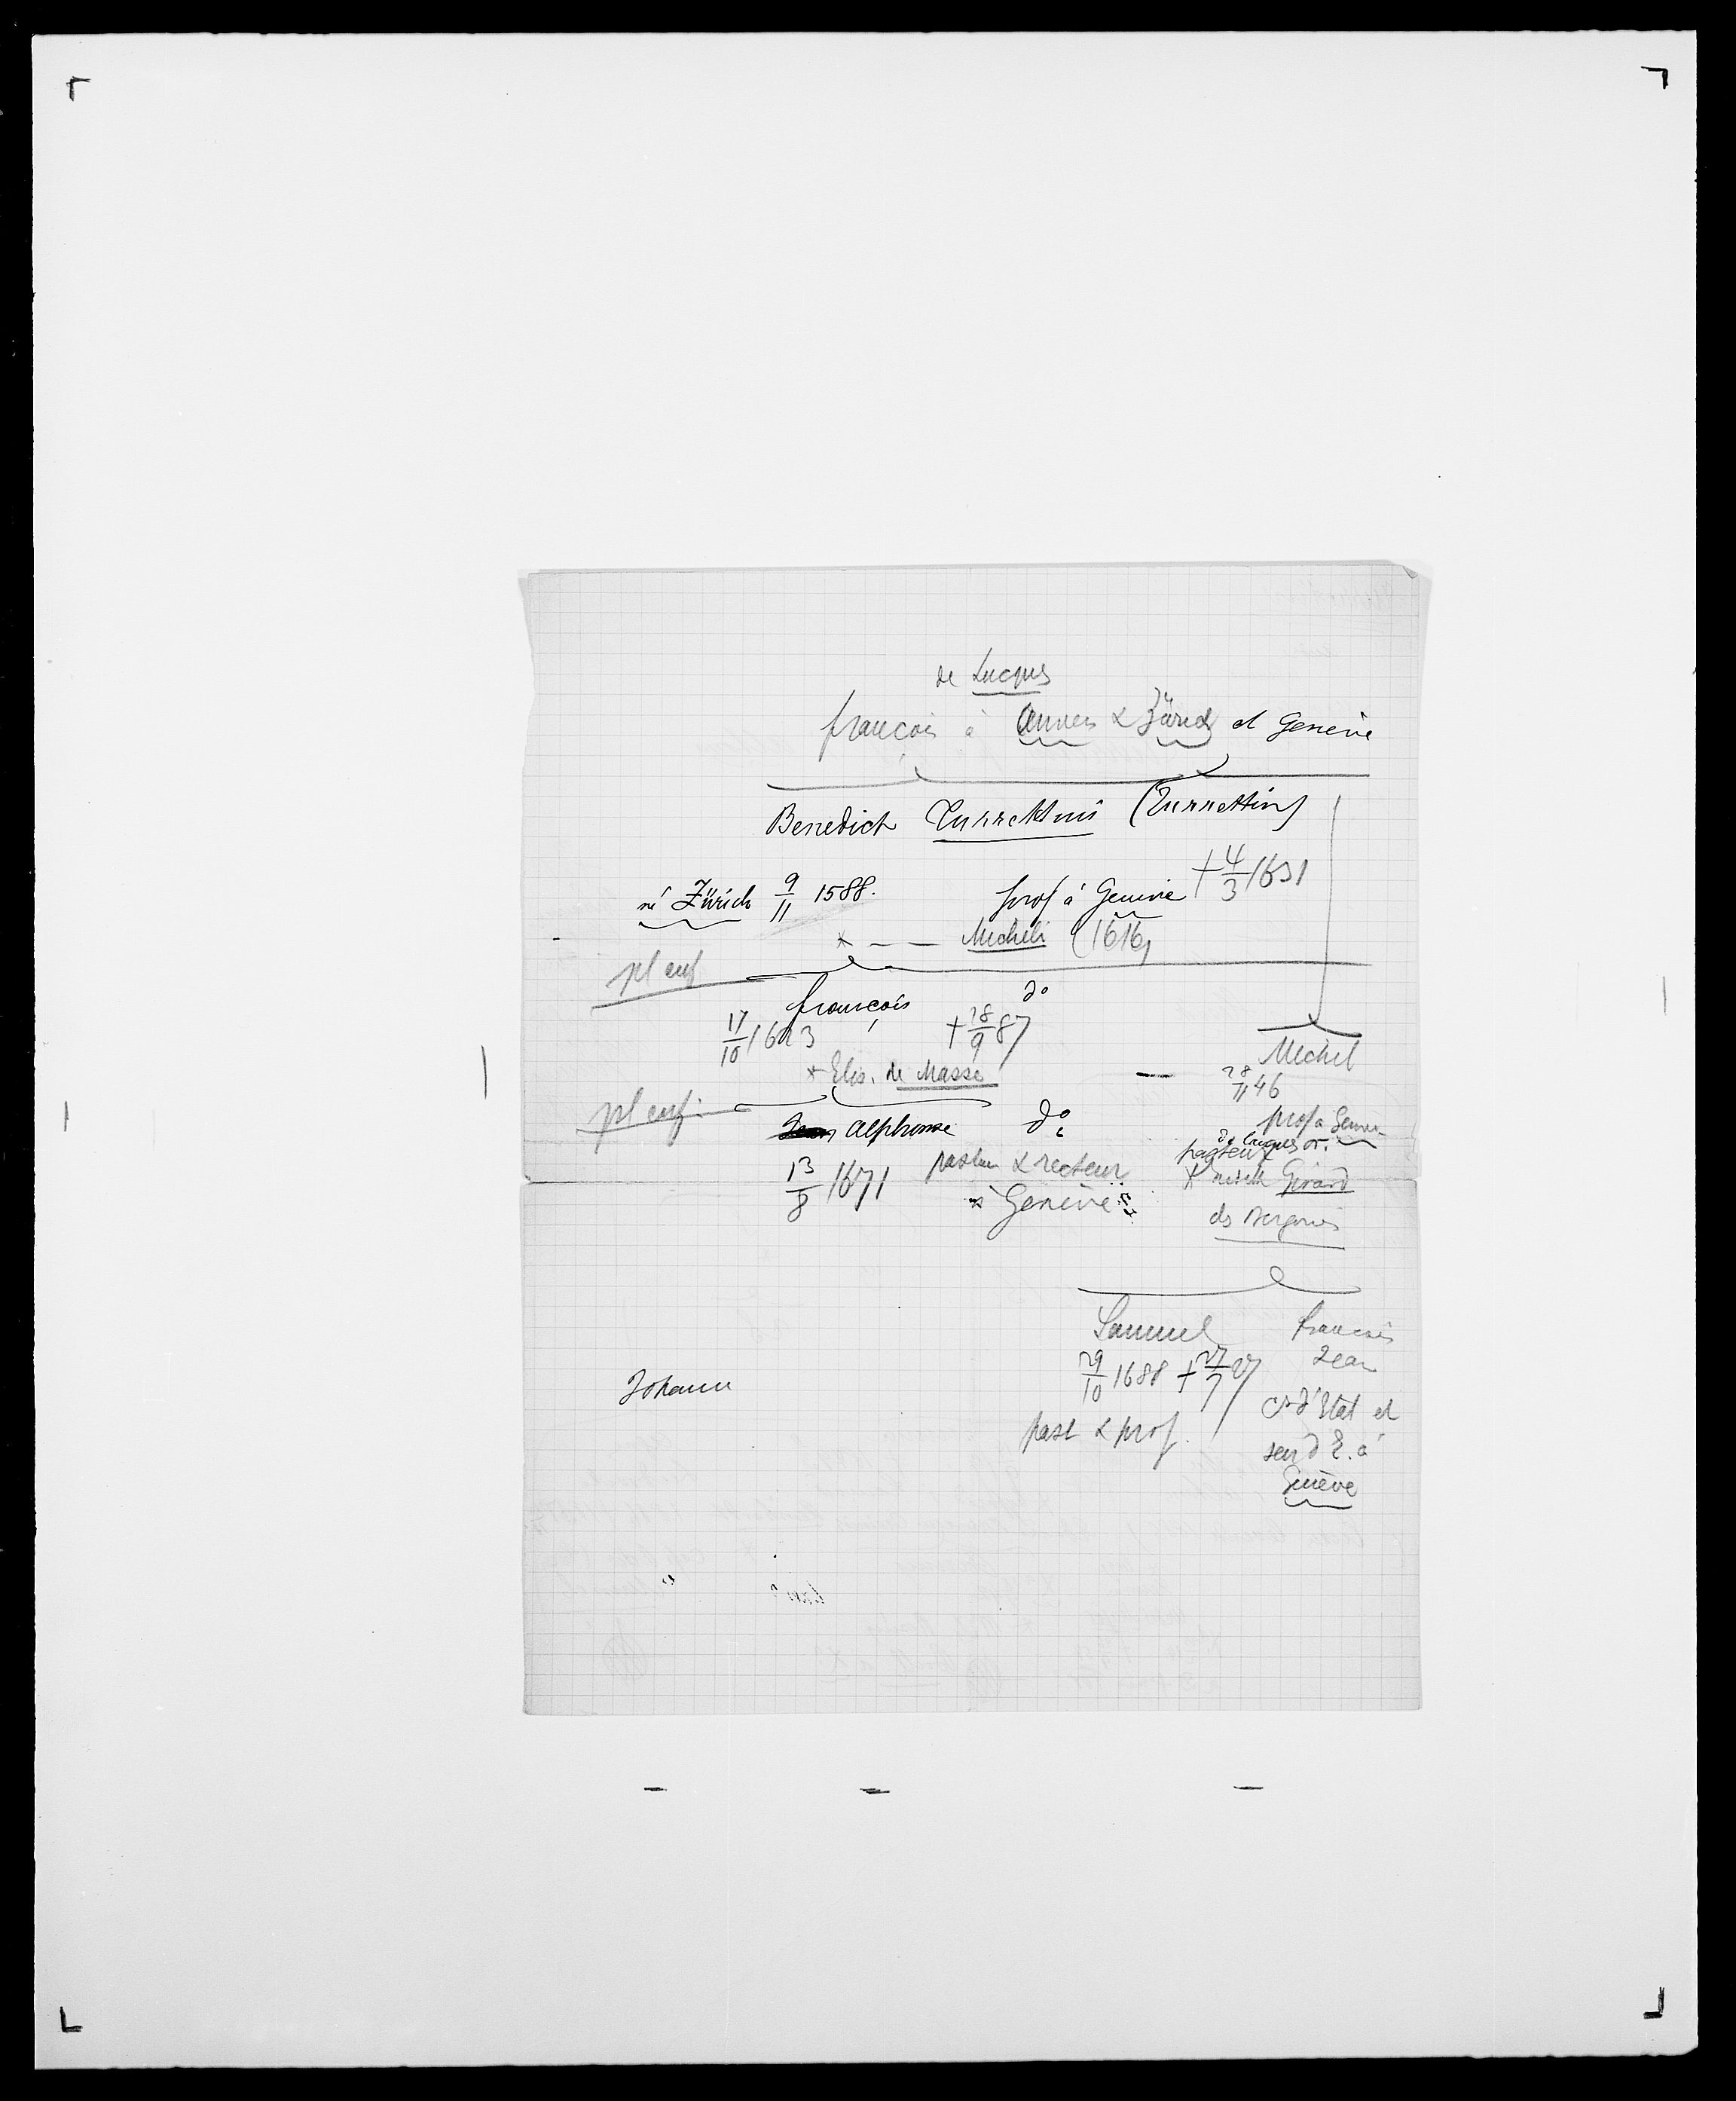 de Lucques
françois à Anvers & Zürich et Genève
Benedict Turrettini (Turrettin)
né Zürich 9/11 1588. prof à Genève † 4/3 1631
* — — Micheli (1616)
pl enf
françois do
17/10 1623 † 28/9 87
* Elis. de Masse
Michel
28/11 46
pl enf:
Alphonse do
prof à Genève
13/8 1671 pasteur & recteur
à Genève
pasteur
de langues or.
Girard
des Bergeries
Samuel
françois
Jean
29/10 1688 † 27/7 27
Johann
past & prof.
Cr d'Etat et
à
Genève